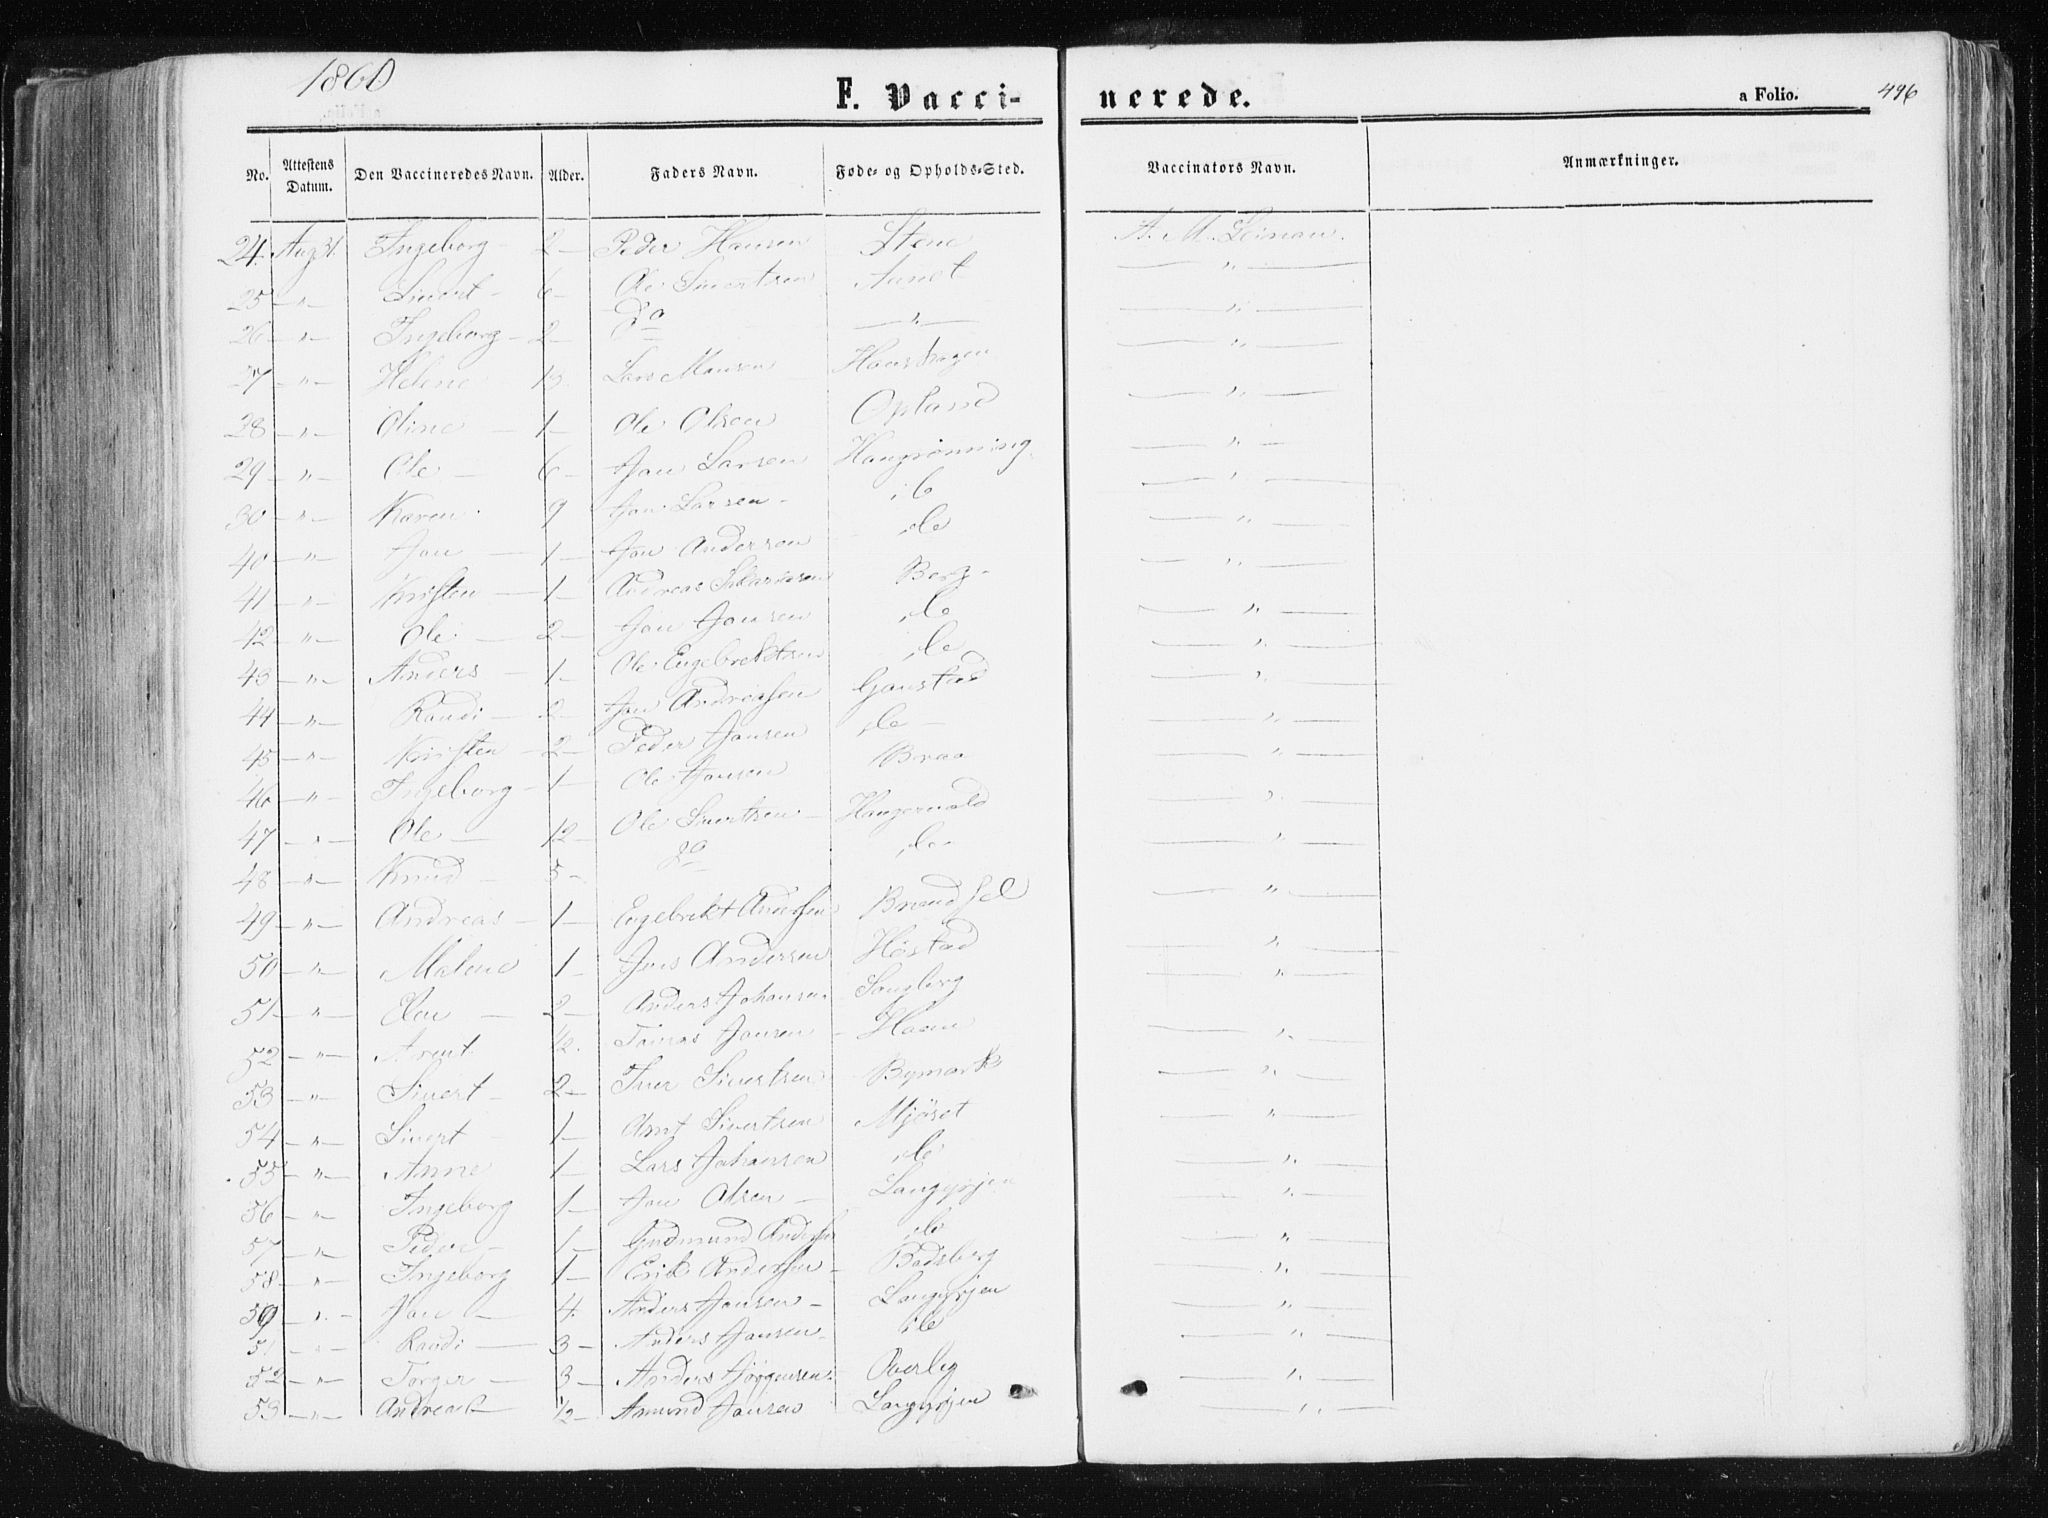 1860
F. Vacci-
nerede.
a Folio. 496
No. Attestens Datum. Den Vaccineredes Navn. Alder. Faders Navn. Føde- og Opholds-Sted. Vaccinators Navn. Anmærkninger.
24. Aug 31. Ingeborg - 2 - Peder Hansen Stene A. M. Leiman.
25 - " - Sivert - 6 - Ole Sivertsen Aunet - " -
26 - " - Ingeborg - 2 - Do - " - - " -
27 - " - Helene 13. Lars - " -
28 - " - Oline - 1 - Ole Olsen Opland - " -
29 - " - Ole - 6 - Jon Larsen Haugrønning - " -
30 - " - Karen. 9 Jon Larsen - do - " -
40 - " - Jon - 1 - Jon Andersen do - " -
41 - " - Kristen - 1 - Andreas Berg - - " -
42 - " - Ole. - 2 - Jon Jonsen do - " -
43 - " - Anders - 1 - Ole Engebrektsen do - " -
44 - " - Randi - 2 - Jon Andreassen Gaustad - " -
45 - " - Kristen - 2 - Peder Jonsen do - - " -
46 - " - Ingeborg - 1 - Ole Jonsen Braa - " -
47 - " - Ole - 12 - Ole Sivertsen - Haugervold - " -
48 - " - Knud - 5 - do do - " -
49 - " - Andreas - 1 - Engebrekt Anderssen - " -
50 - " - Malene 1 - Jens Andersen Høstad - " -
51 - " - - 2 - Anders Johansen - Songberg - " -
52 - " - Arent 1/2. Tomas Jonsen - - " -
53 - " - Sivert - 2 - Iver Sivertsen Bymark - " -
54 - " - Sivert - 1 - Arnt Sivertsen Mjøset - " -
55 - " - Anne 1 - Lars Johansen do - " -
56 - " - Ingeborg 1 - Jon Olsen - Langørjen - " -
57 - " - 1 - Gudmund Anderssen do - " -
58 - " - Ingeborg 1 - Erik Anderssen - Bodsberg - " -
59 - " - Jon - 4. Anders Jonsen - Langørjen - " -
51 - " - Randi - 3 - Anders Jonsen - do - " -
52 - " - Torger - 3 - Anders Jørgensen. Øverby - " -
53 - " - Andreas - 1/2 - Amund Jonsen Langørjen - " -